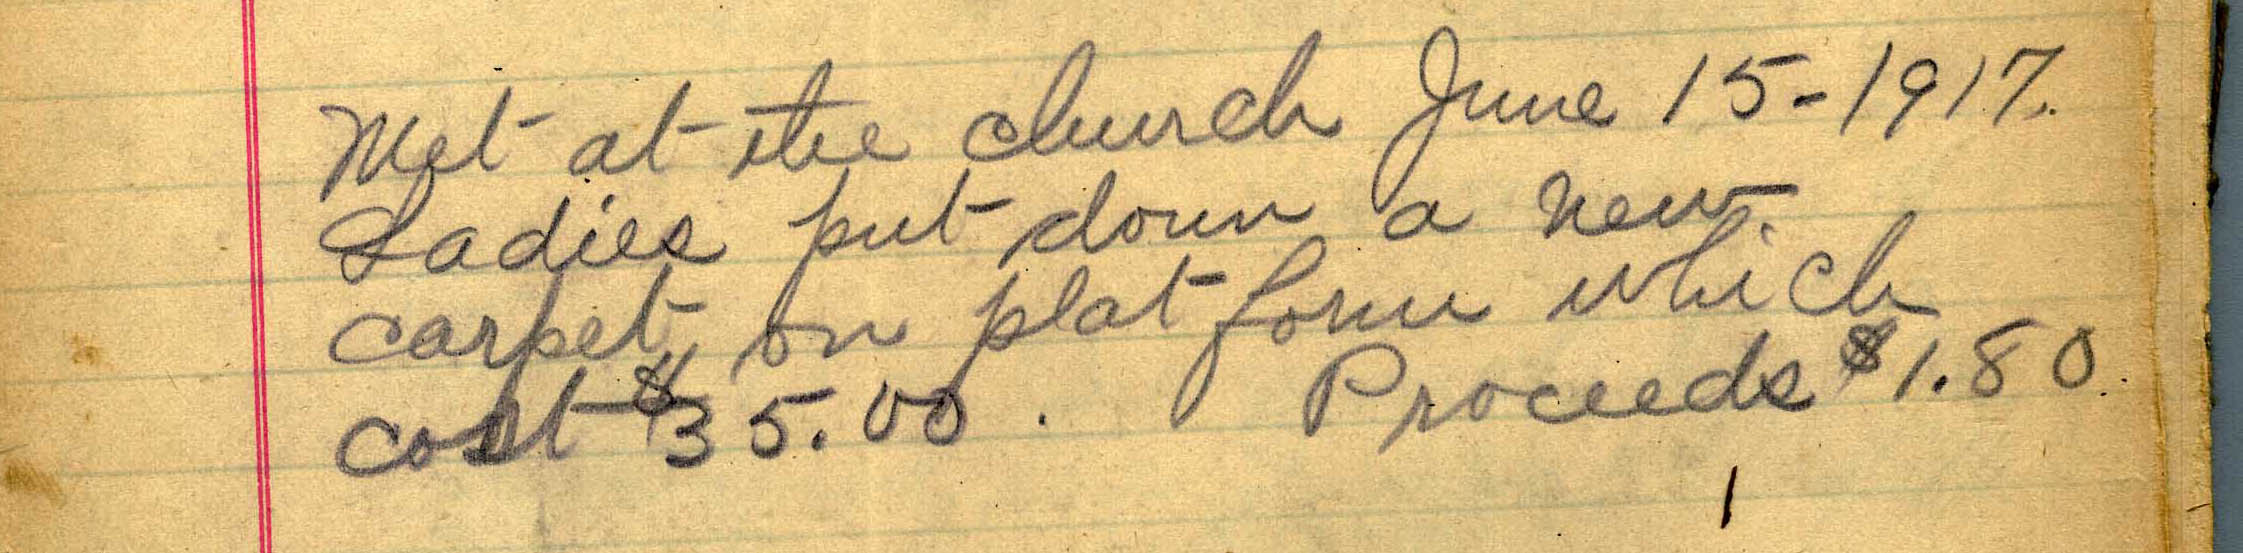 Met at the church June 15-1917.
Ladies put down a new
carpet on platform which
cost $35.00. Proceeds $1.80